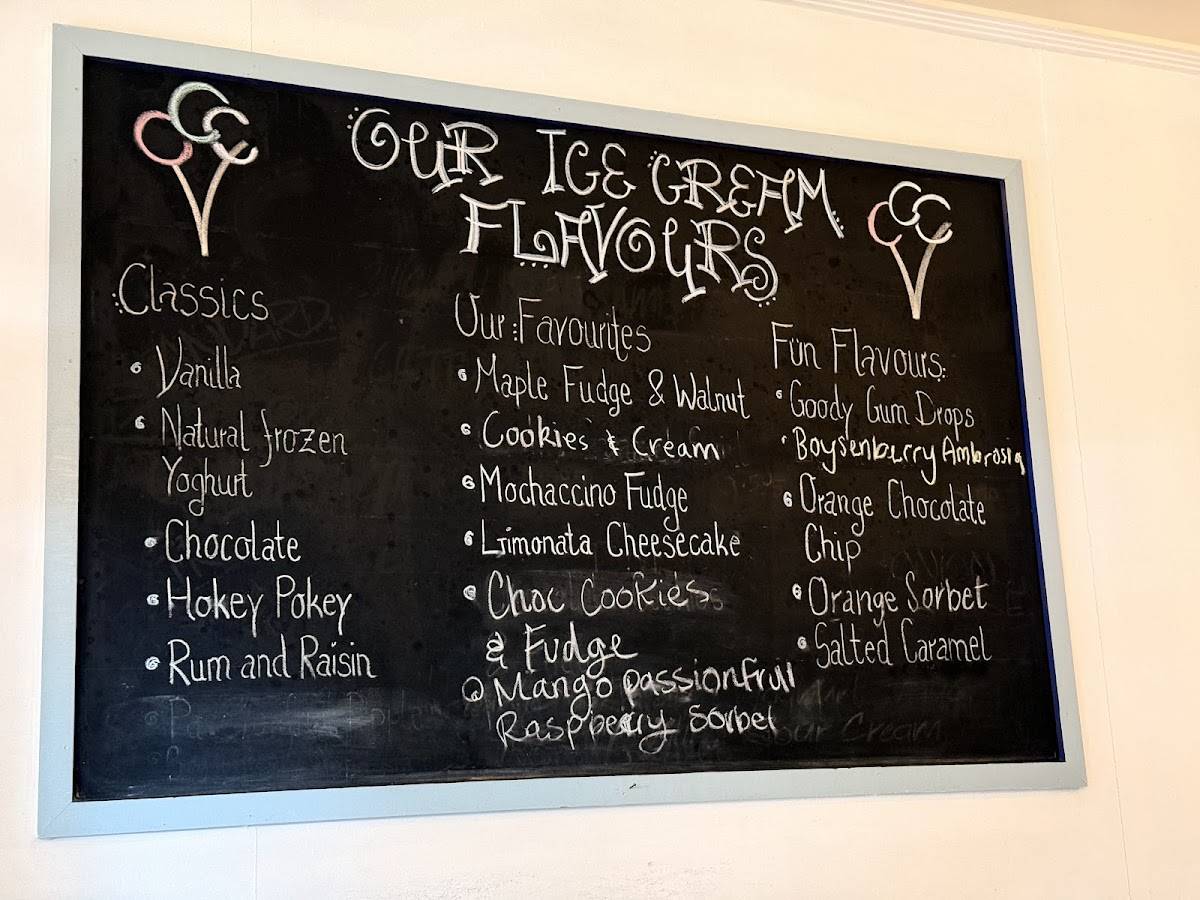 OUR ICE CREAM
FLAVOURS
Classics
• Vanilla
• Natural frozen
Yoghurt
• Chocolate
• Hokey Pokey
• Rum and Raisin
Our Favourites
• Maple Fudge & Walnut
• Cookies & Cream
• Mochaccino Fudge
• Limonata Cheesecake
• Choc Cookies
& Fudge
• Mango passionfruit
Raspberry Sorbet
Fun Flavours:
• Goody Gum Drops
• Boysenberry Ambrosia
• Orange Chocolate
Chip
• Orange Sorbet
• Salted Caramel